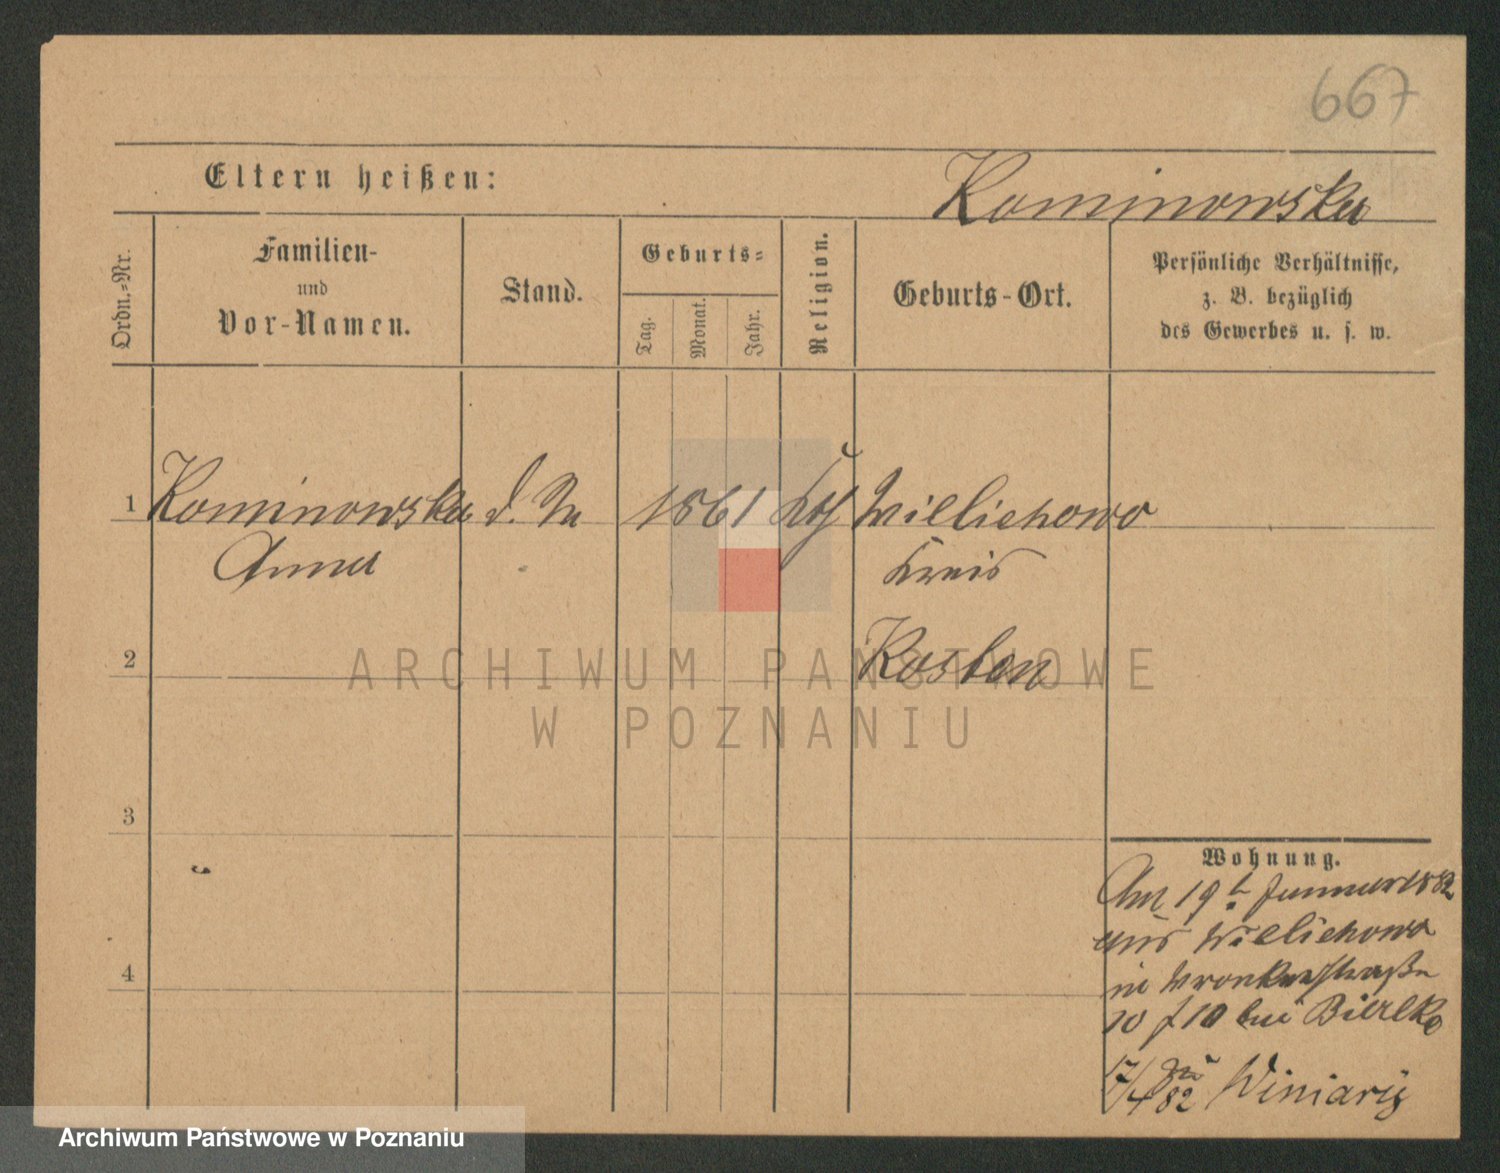 667
Eltern heißen:
Kominowska
Ordn.-Nr.
Familien-
und
Vor-Namen.
Stand.
Geburts-
Tag.
Monat.
Jahr.
Religion.
Geburts-Ort.
Persönliche Verhältnisse,
z. B. bezüglich
des Gewerbes u. s. w.
1 Kominowska d. M 1861 kth Wielichowo
Anna
Kreis
2 Kosten
ARCHIWUM PAŃSTWOWE
W POZNANIU
3
Wohnung.
Am 19t Januar 1882
aus Wielichowo
in Wronkerstraße
10 f 10 bei Bielke
4
17/4 82 Winiary
Archiwum Państwowe w Poznaniu